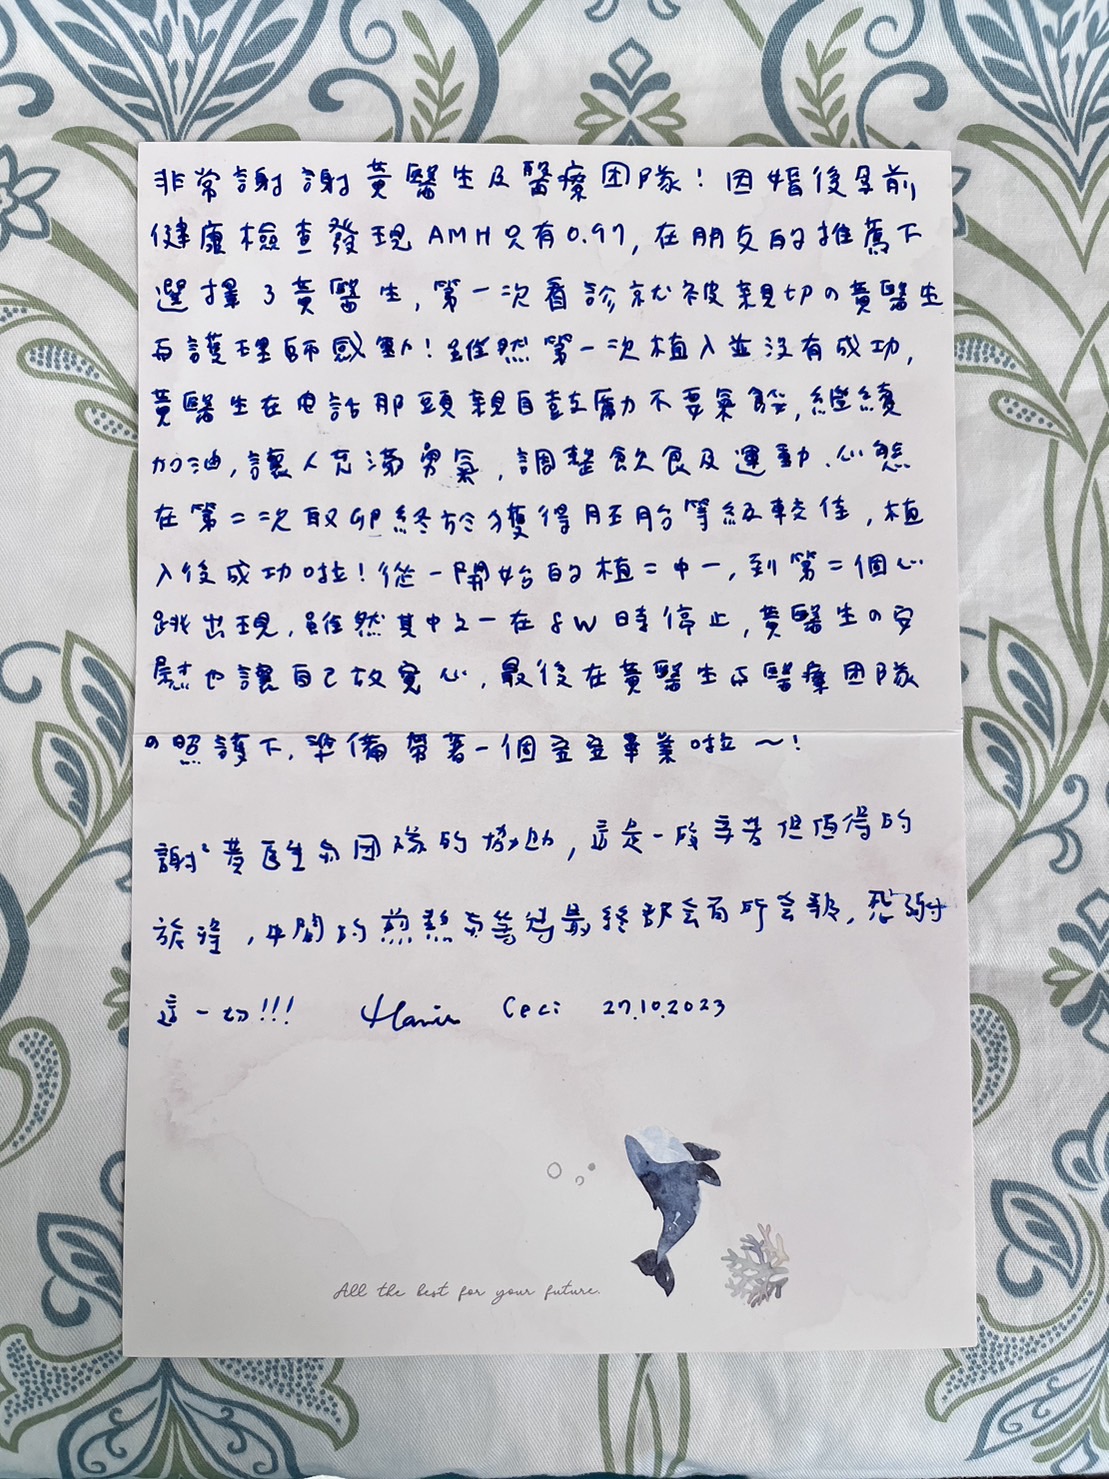 非常謝謝黃醫生及醫療团隊！因婚後孕前
健康檢查發現AMH只有0.97,在朋友的推薦下
選擇了黃醫生,第一次看診就被親切の黃醫生
與護理師感動！雖然第一次植入並沒有成功,
黃醫生在电話那頭親自鼓勵不要氣餒,繼續
加油,讓人充滿勇氣,調整飲食及運動、心態
在第二次取卵終於獲得胚胎等級較佳,植
入後成功啦！從一開始的植二中一,到第二個心
跳出現,雖然其中之一在8W時停止,黃醫生の安
慰也讓自己放寬心,最後在黃醫生与醫療团隊
の照護下,準備帶著一個宝宝畢業啦～！
謝謝黃医生与团隊的協助,這是一段辛苦但值得的
旅程,中間的煎熬与等待最終都會有所會報,感謝
這一切!!! Ceci 27.10.2023
All the best for your future.